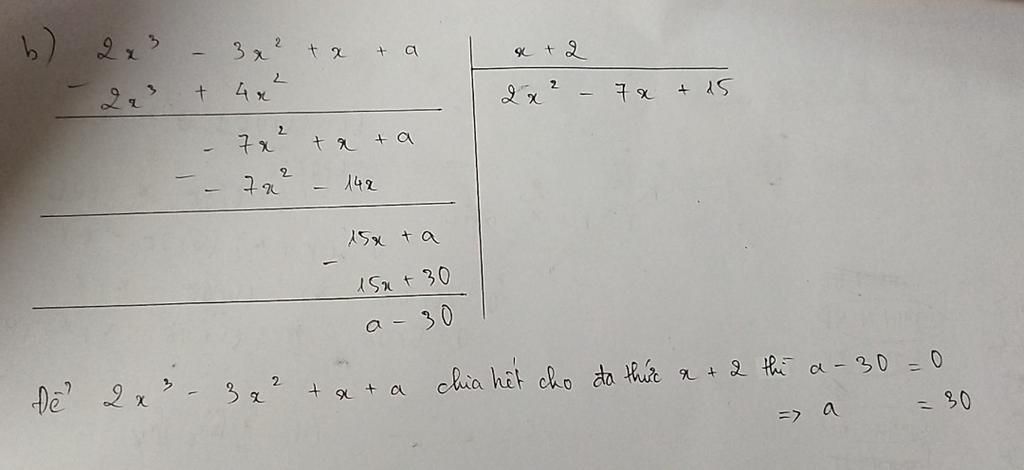 b) 2x³ - 3x² + x + a | x + 2
- 2x³ + 4x² | 2x² - 7x + 15
- 7x² + x + a
- - 7x² - 14x
15x + a
-
15x + 30
a - 30
Để 2x³ - 3x² + x + a chia hết cho đa thức x + 2 thì a - 30 = 0
=> a = 30